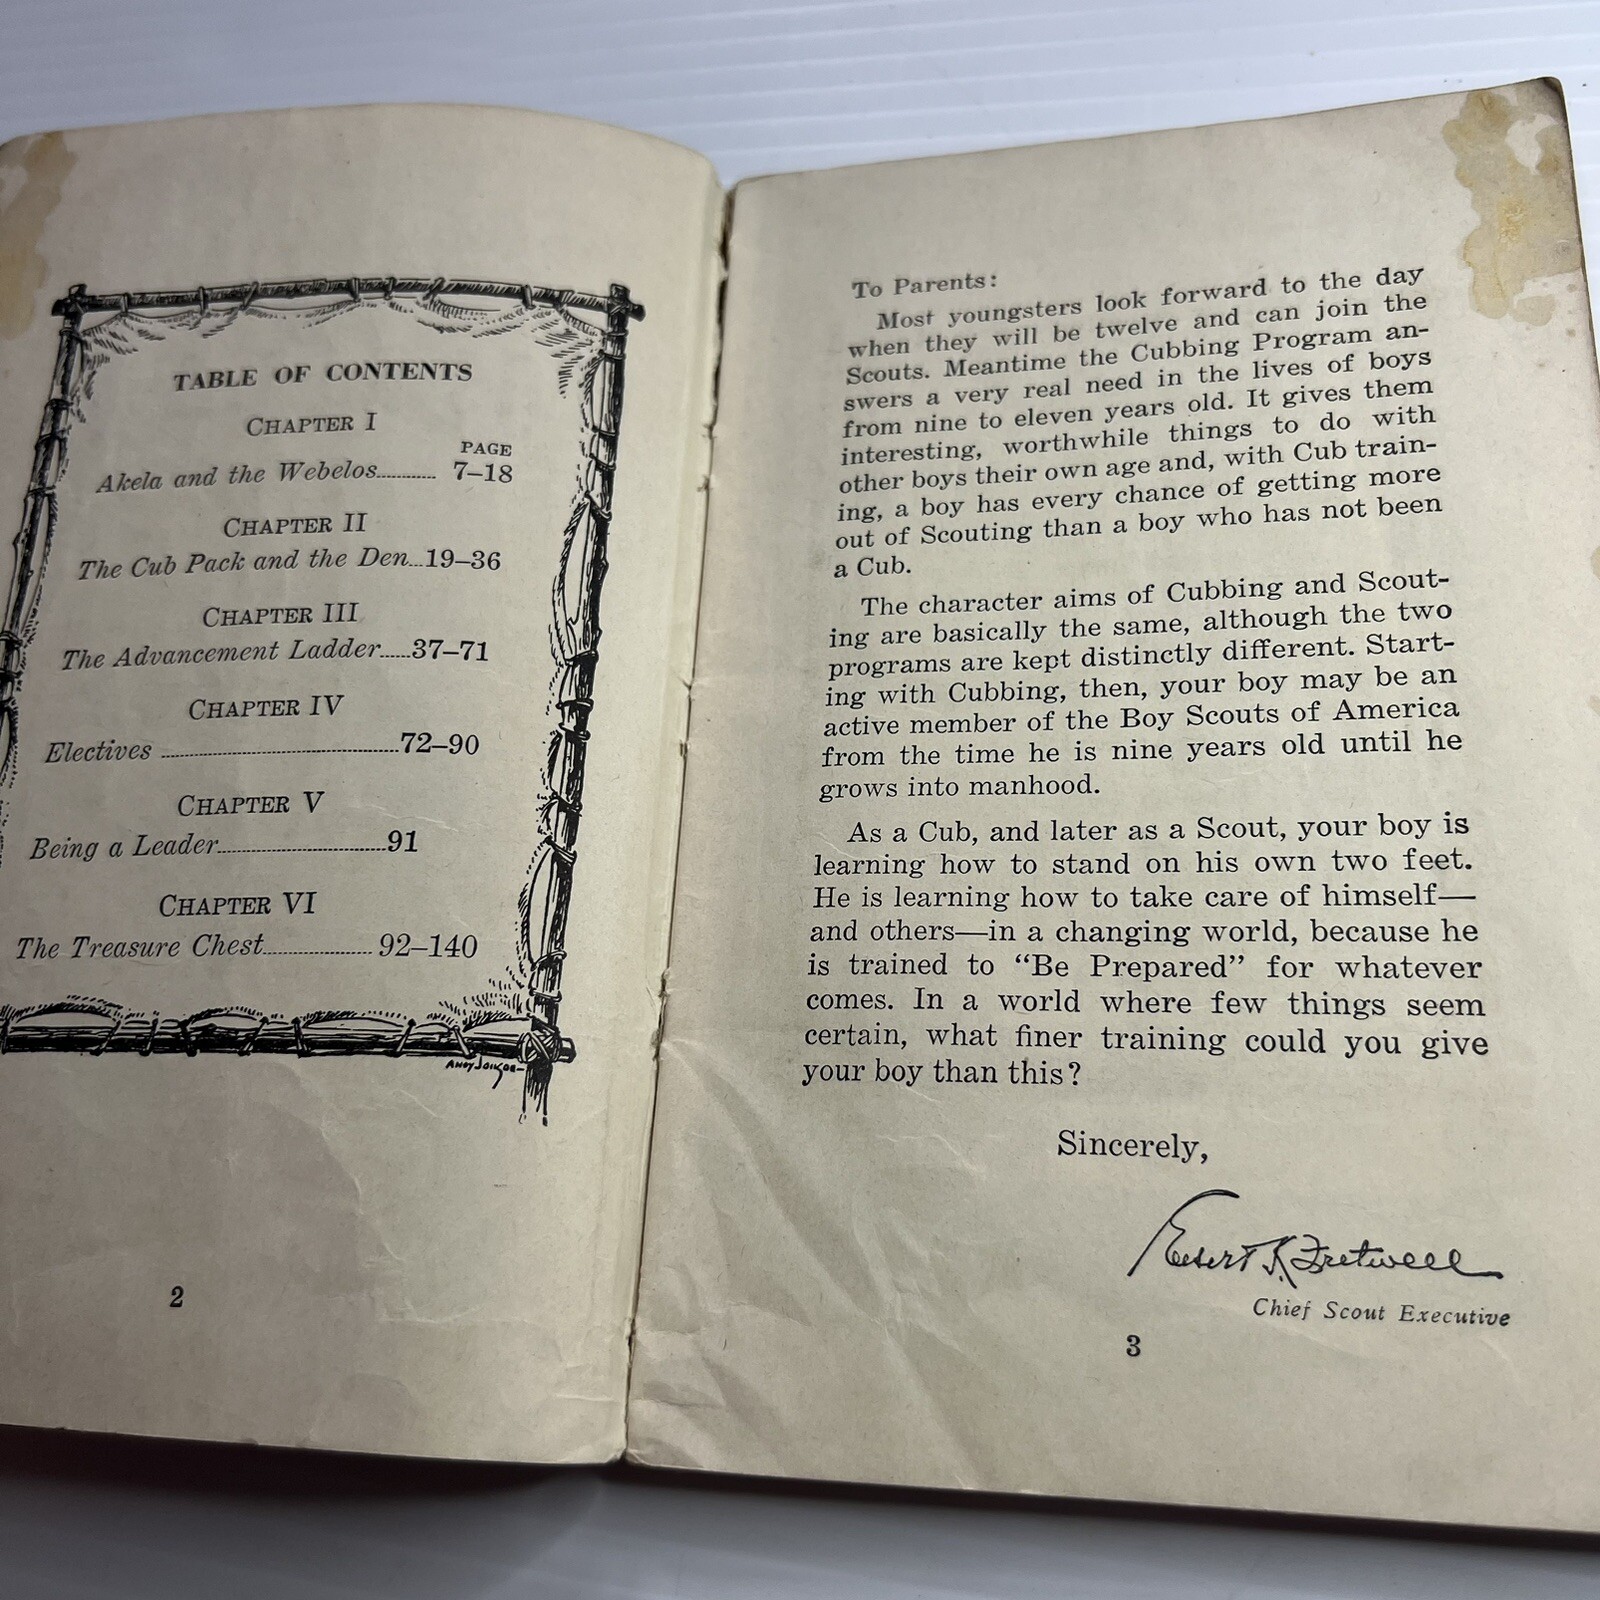 TABLE OF CONTENTS
CHAPTER I
PAGE
Akela and the Webelos............ 7–18
CHAPTER II
The Cub Pack and the Den...19–36
CHAPTER III
The Advancement Ladder......37–71
CHAPTER IV
Electives ................................72–90
CHAPTER V
Being a Leader..........................91
CHAPTER VI
The Treasure Chest................ 92–140
2
To Parents:
Most youngsters look forward to the day
when they will be twelve and can join the
Scouts. Meantime the Cubbing Program an-
swers a very real need in the lives of boys
from nine to eleven years old. It gives them
interesting, worthwhile things to do with
other boys their own age and, with Cub train-
ing, a boy has every chance of getting more
out of Scouting than a boy who has not been
a Cub.
The character aims of Cubbing and Scout-
ing are basically the same, although the two
programs are kept distinctly different. Start-
ing with Cubbing, then, your boy may be an
active member of the Boy Scouts of America
from the time he is nine years old until he
grows into manhood.
As a Cub, and later as a Scout, your boy is
learning how to stand on his own two feet.
He is learning how to take care of himself—
and others—in a changing world, because he
is trained to “Be Prepared” for whatever
comes. In a world where few things seem
certain, what finer training could you give
your boy than this?
Sincerely,
Elbert K. Fretwell
Chief Scout Executive
3